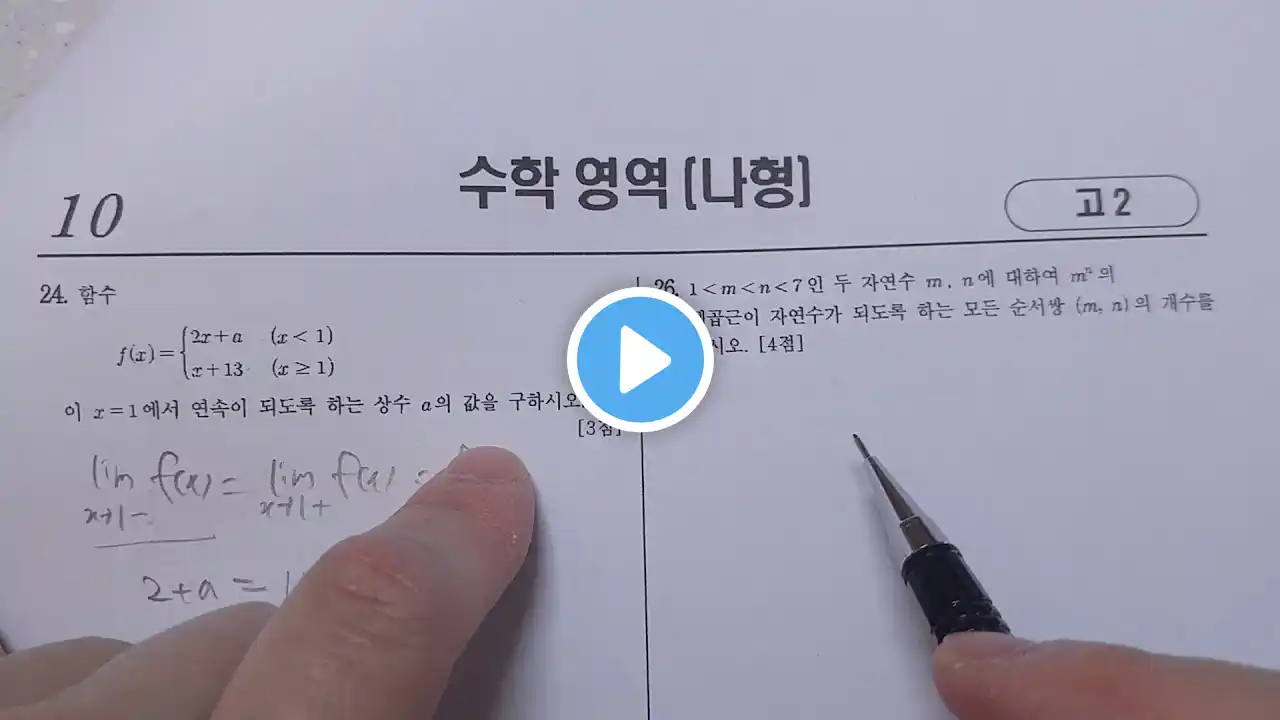 수학 영역 [나형]
10
고 2
24. 함수
f(x) = { 2x + a (x < 1)
x + 13 (x ≥ 1)
이 x = 1에서 연속이 되도록 하는 상수 a의 값을 구하시오.
[3점]
lim f(x) = lim f(x) =
x→1- x→1+
2+a =
26. 1 < m < n < 7인 두 자연수 m, n에 대하여 mⁿ의
자연수가 되도록 하는 모든 순서쌍 (m, n)의 개수를
[4점]